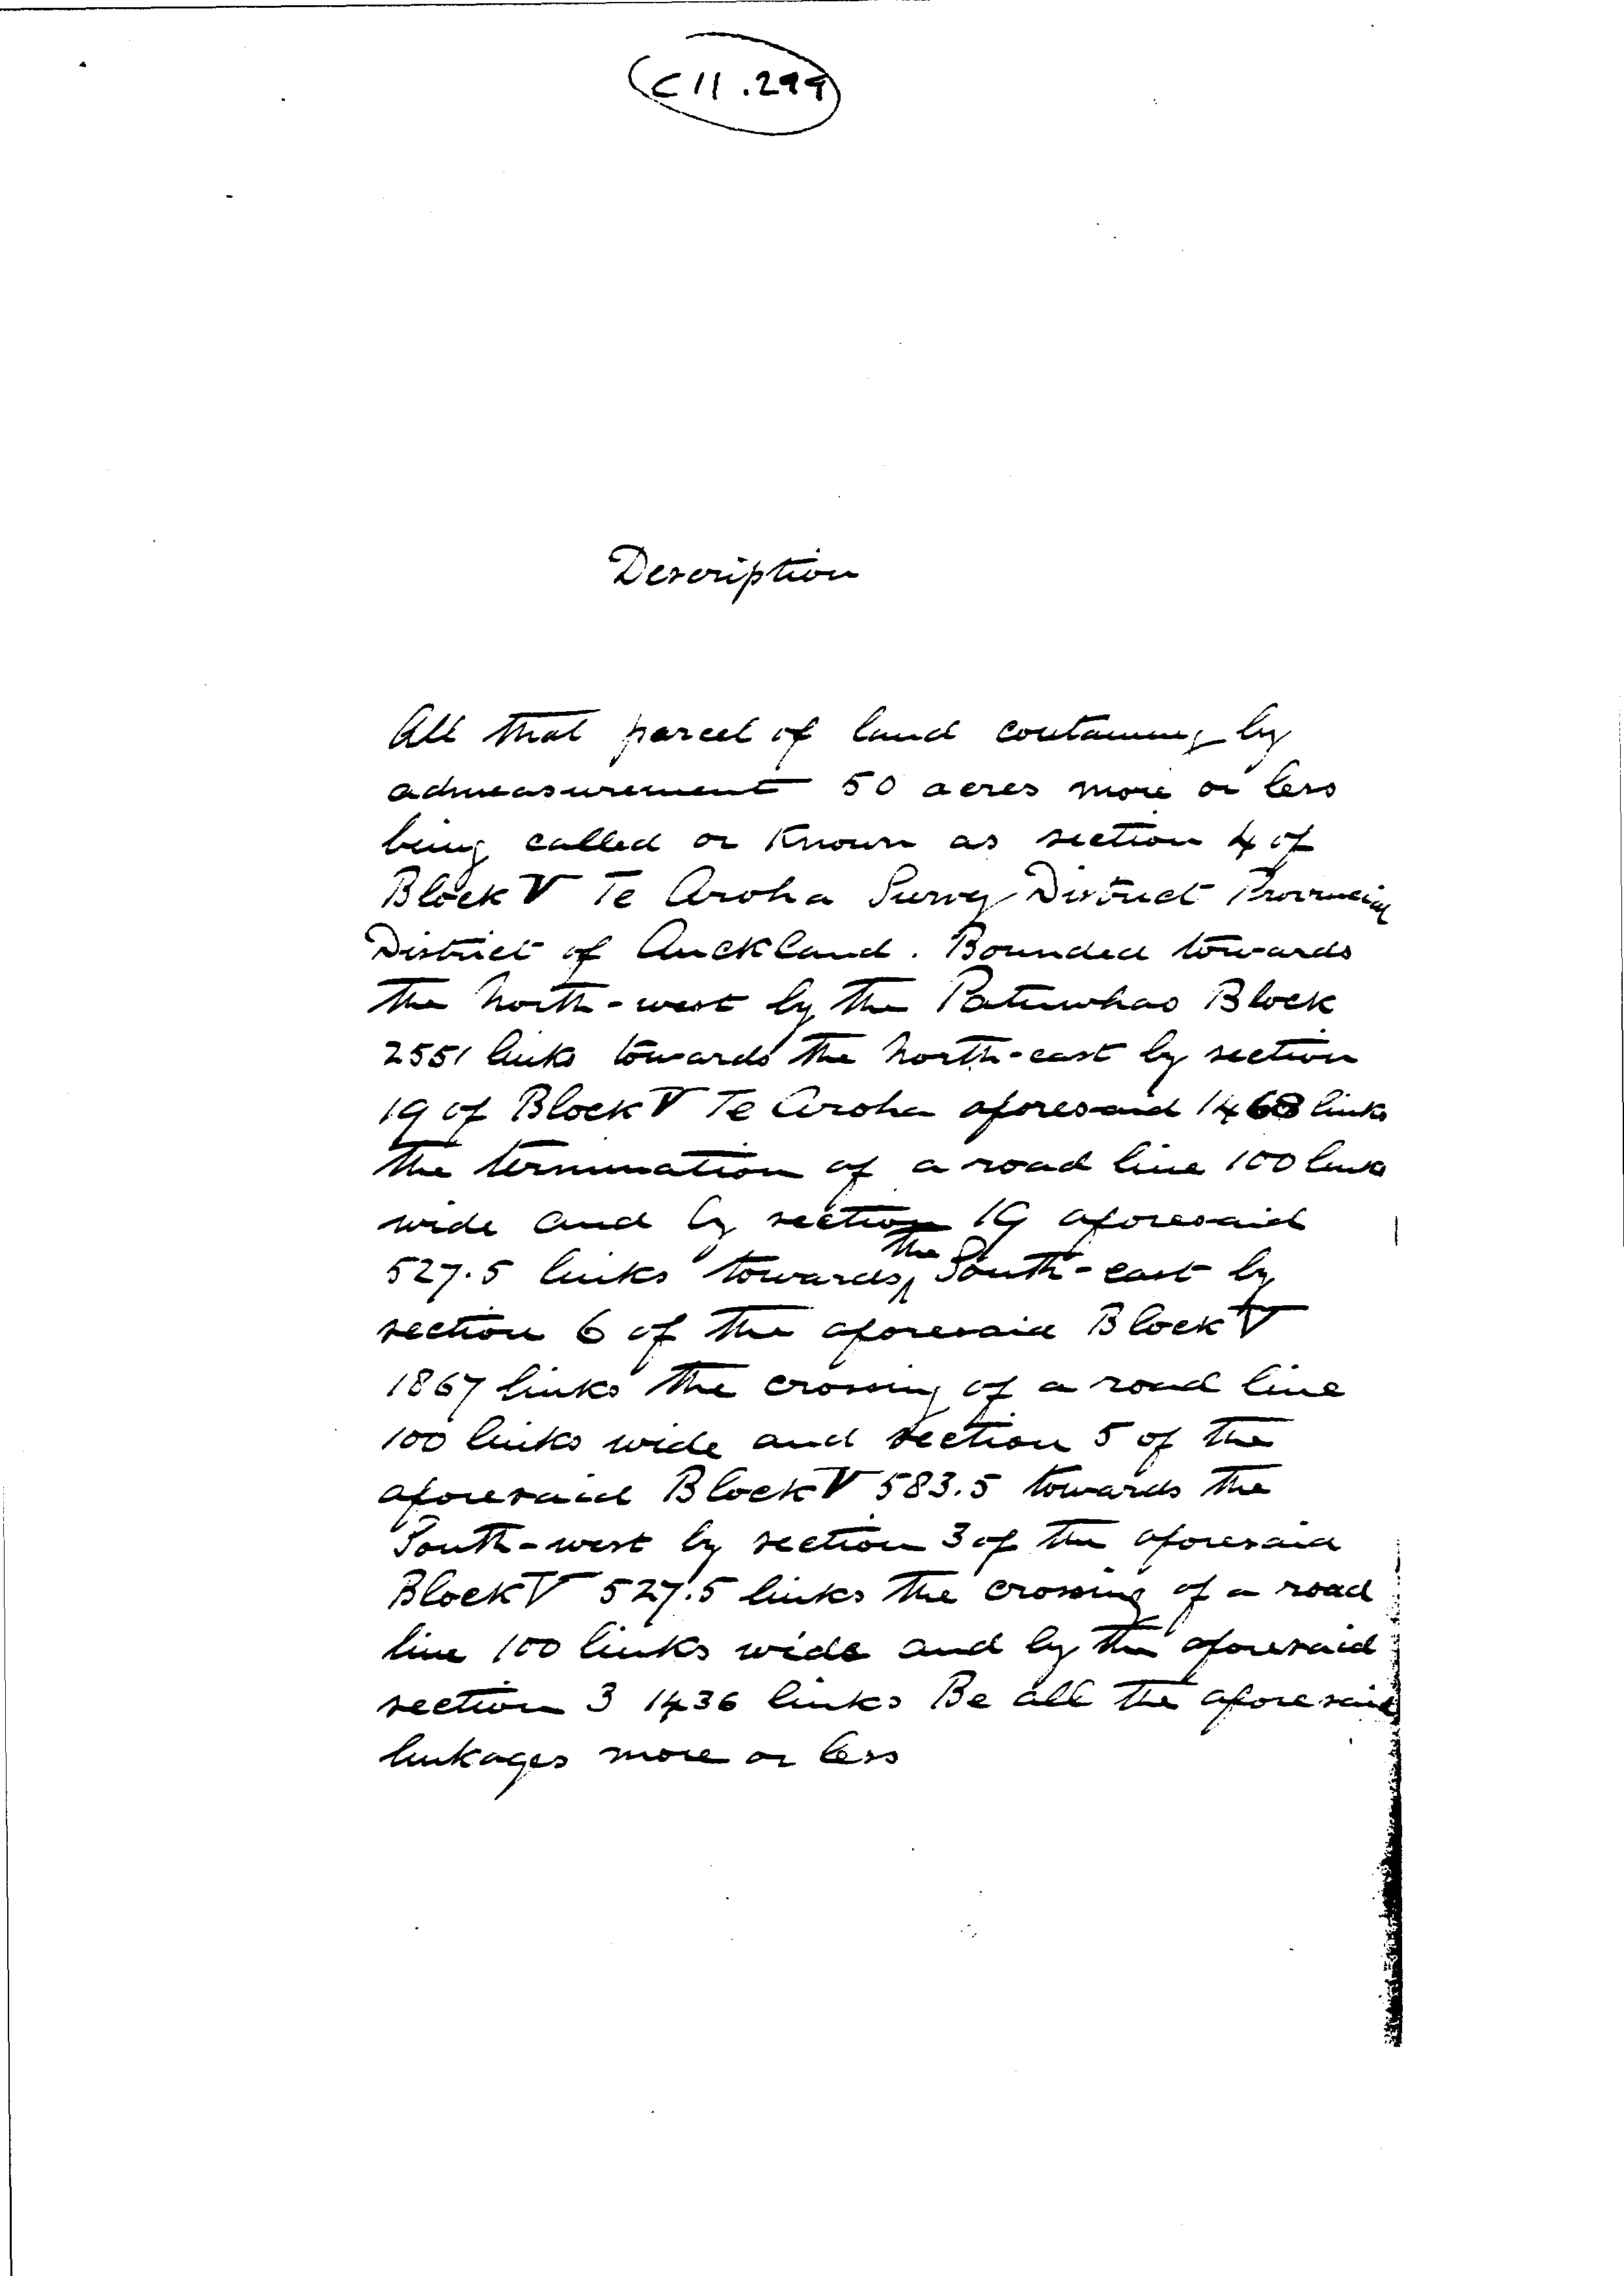 C 11.299
Description
All that parcel of land containing by
admeasurement 50 acres more or less
being called or known as section 4 of
Block V Te Aroha Survey District Provincial
District of Auckland. Bounded towards
the North-west by the Patuwhao Block
2551 links towards the North-east by section
19 of Block V Te Aroha aforesaid 1468 links
the termination of a road line 100 links
wide and by section 19 aforesaid
527.5 links towards the South-east by
section 6 of the aforesaid Block V
1867 links the crossing of a road line
100 links wide and section 5 of the
aforesaid Block V 583.5 towards the
South-west by section 3 of the aforesaid
Block V 527.5 links the crossing of a road
line 100 links wide and by the aforesaid
section 3 1436 links Be all the aforesaid
linkages more or less